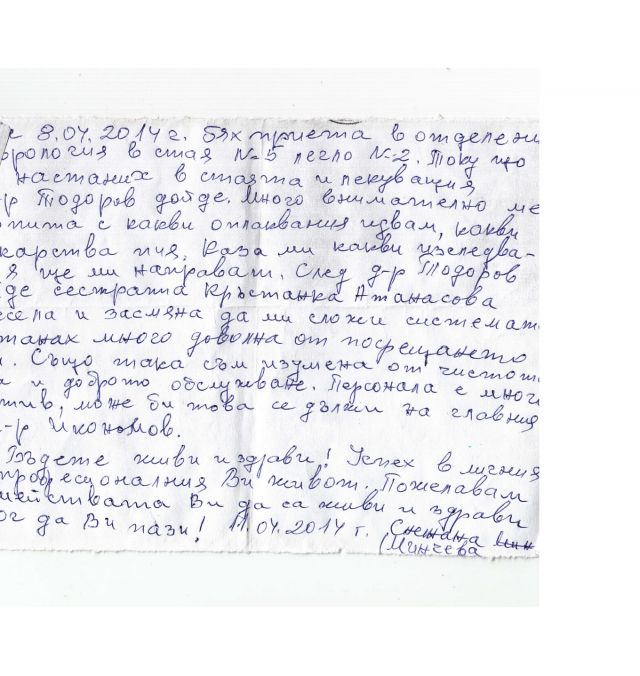 с 8.04.2014 г. бях приета в отделени
врология в стая №5 легло №2. Току що
настаних в стаята и лекуващия
-р Тодоров дойде. Много внимателно ме
опита с какви оплаквания идвам, какви
карства пия. Каза ми какви изследва-
я ще ми направят. След д-р Тодоров
де сестрата Кръстанка Атанасова
есела и засмяна да ми сложи системат
станах много доволна от посрещането
и. Също така съм изумена от чистот
а и доброто обслужване. Персонала е много
тив, може би това се дължи на главния
-р Икономов.
Бъдете живи и здрави! Успех в личния
професионалния Ви живот. Пожелавам
мействата Ви да са живи и здрави
ог да Ви пази! 11.04.2014 г. Снежана
(Минчева